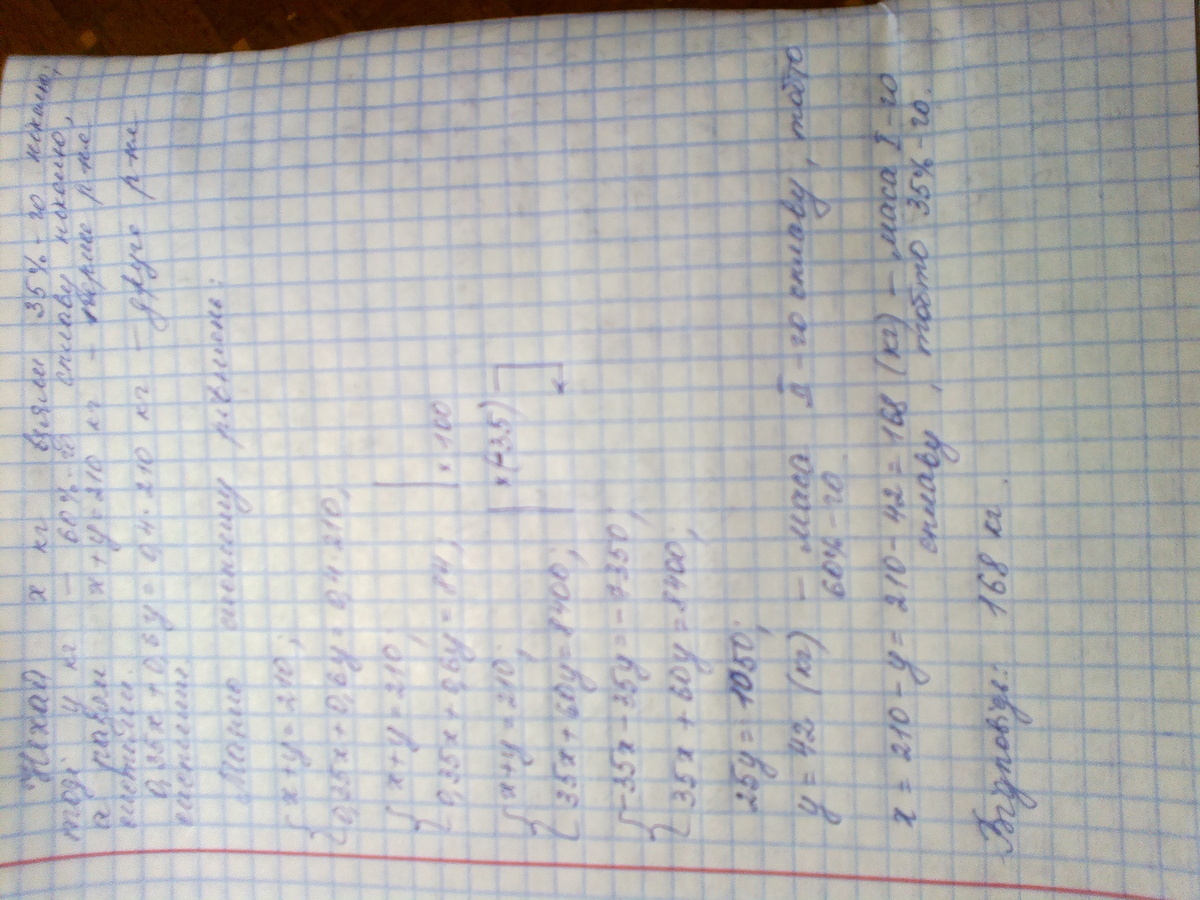 Нехай x кг взяли 35%-го нікелю,
тоді y кг — 60%-го сплаву нікелю,
а разом x+y=210 кг - перше р-не
системи.
0,35x+0,6y=0,4·210 кг - друге р-не
системи
Маємо систему рівнянь:
{ x+y=210;
0,35x+0,6y=0,4·210;
{ x+y=210;
0,35x+0,6y=84; | ×100
{ x+y=210; | ×(-35)
35x+60y=8400;
{ -35x-35y=-7350;
35x+60y=8400;
25y=1050;
y=42 (кг) - маса II-го сплаву, тобто
60%-го
x=210-y=210-42=168 (кг) - маса I-го
сплаву, тобто 35%-го.
Відповідь: 168 кг.